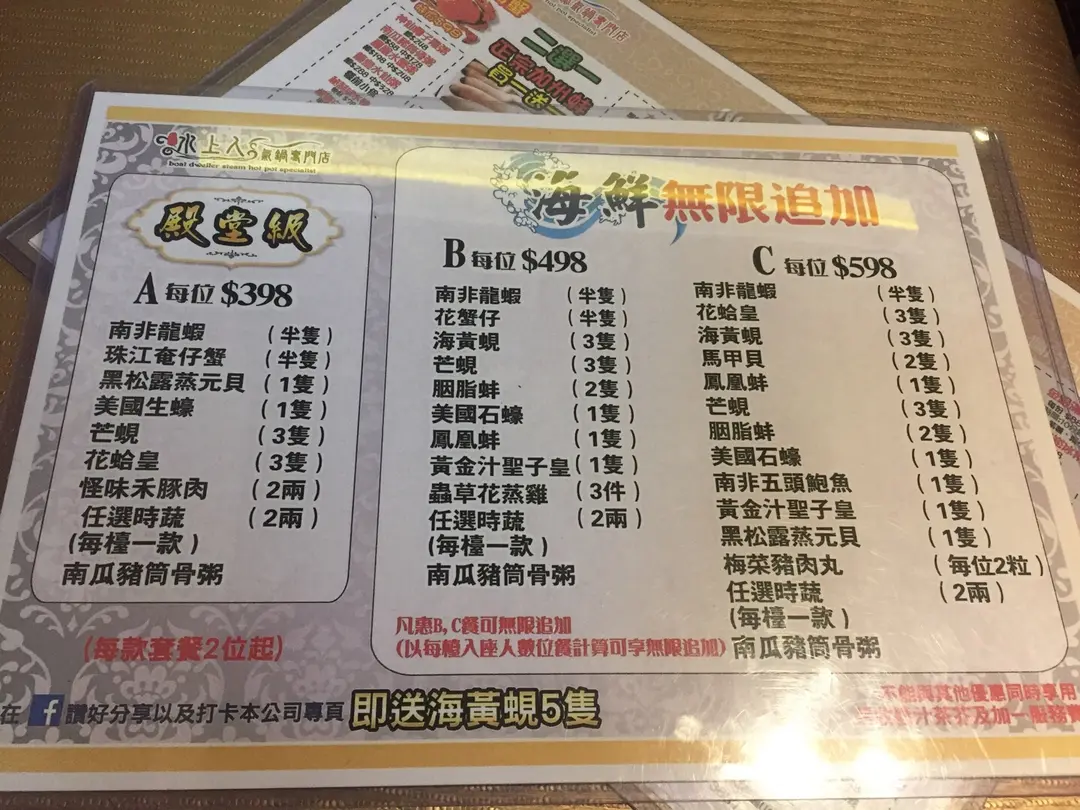 二選一
水上人蒸氣鍋專門店
boat dweller steam hot pot specialist
殿堂級
A 每位 $398
南非龍蝦 (半隻)
珠江奄仔蟹 (半隻)
黑松露蒸元貝 (1隻)
美國生蠔 (1隻)
芒蜆 (3隻)
花蛤皇 (3隻)
怪味禾豚肉 (2兩)
任選時蔬 (2兩)
(每檯一款)
南瓜豬筒骨粥
(每款套餐2位起)
海鮮無限追加
B 每位 $498
南非龍蝦 (半隻)
花蟹仔 (半隻)
海黃蜆 (3隻)
芒蜆 (3隻)
胭脂蚌 (2隻)
美國石蠔 (1隻)
鳳凰蚌 (1隻)
黃金汁聖子皇 (1隻)
蟲草花蒸雞 (3件)
任選時蔬 (2兩)
(每檯一款)
南瓜豬筒骨粥
C 每位 $598
南非龍蝦 (半隻)
花蛤皇 (3隻)
海黃蜆 (3隻)
馬甲貝 (2隻)
鳳凰蚌 (1隻)
芒蜆 (3隻)
胭脂蚌 (2隻)
美國石蠔 (1隻)
南非五頭鮑魚 (1隻)
黃金汁聖子皇 (1隻)
黑松露蒸元貝 (1隻)
梅菜豬肉丸 (每位2粒)
任選時蔬 (2兩)
(每檯一款)
南瓜豬筒骨粥
凡惠B, C餐可無限追加
(以每檯入座人數位餐計算可享無限追加)
在 f 讚好分享以及打卡本公司專頁 即送海黃蜆5隻
不能與其他優惠同時享用
汁茶芥及加一服務費